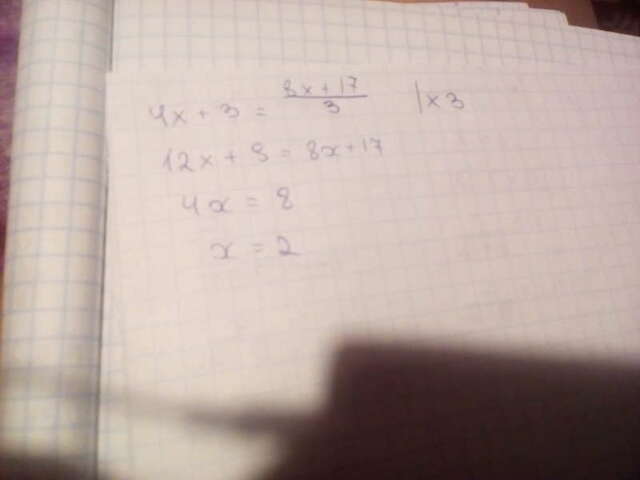 4x + 3 = (8x + 17)/3 |x3
12x + 9 = 8x + 17
4x = 8
x = 2